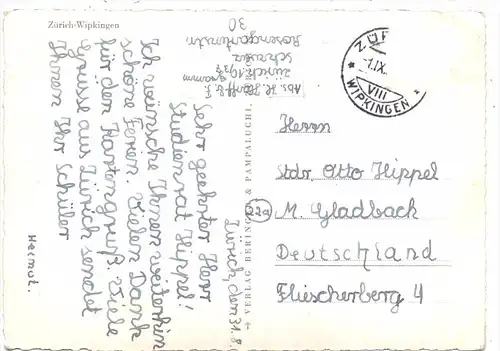 Zürich-Wipkingen
Zürich, den 31.8.
Sehr geehrter Herr
Studienrat Hippel!
Ich wünsche Ihnen weiterhin
schöne Ferien. Vielen Dank
für den Kartengruß. Viele
Grüsse aus Zürich sendet
Ihnen Ihr Schüler
Helmut.
Abs. H.
Zürich 10/37
Schweiz
Rosengartenstr.
30
VERLAG BERINGER & PAMPALUCHI,
ZÜR
1.IX.
VIII
WIPKINGEN
Herrn
Stdr. Otto Hippel
22a M. Gladbach
Deutschland
Fliescherberg 4